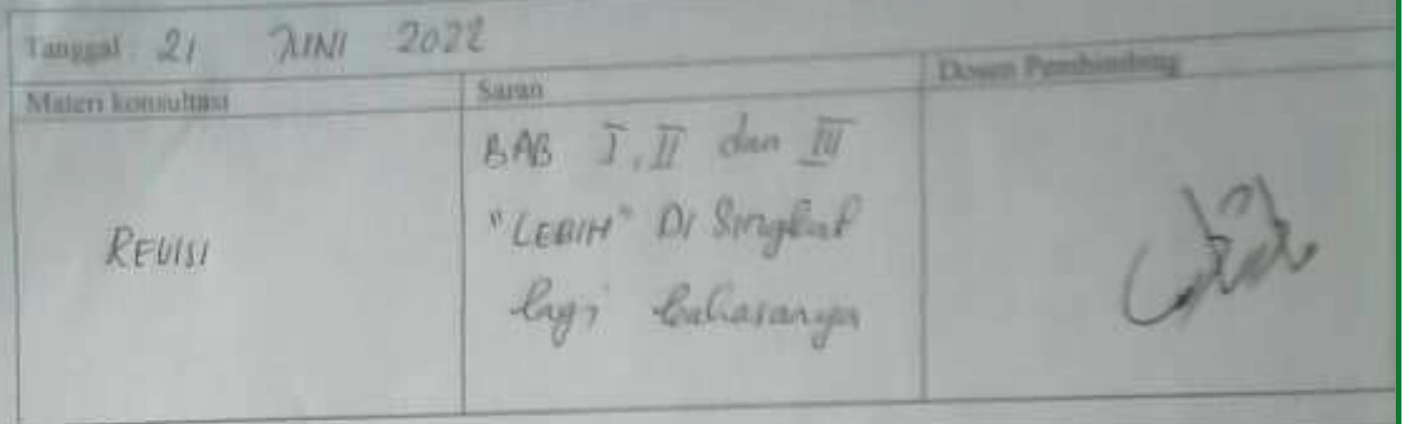 Tanggal : 21 JUNI 2022
Materi konsultasi
Saran
Dosen Pembimbing
REVISI
BAB I, II dan III
"LEBIH" Di Singkat
lagi bahasanya